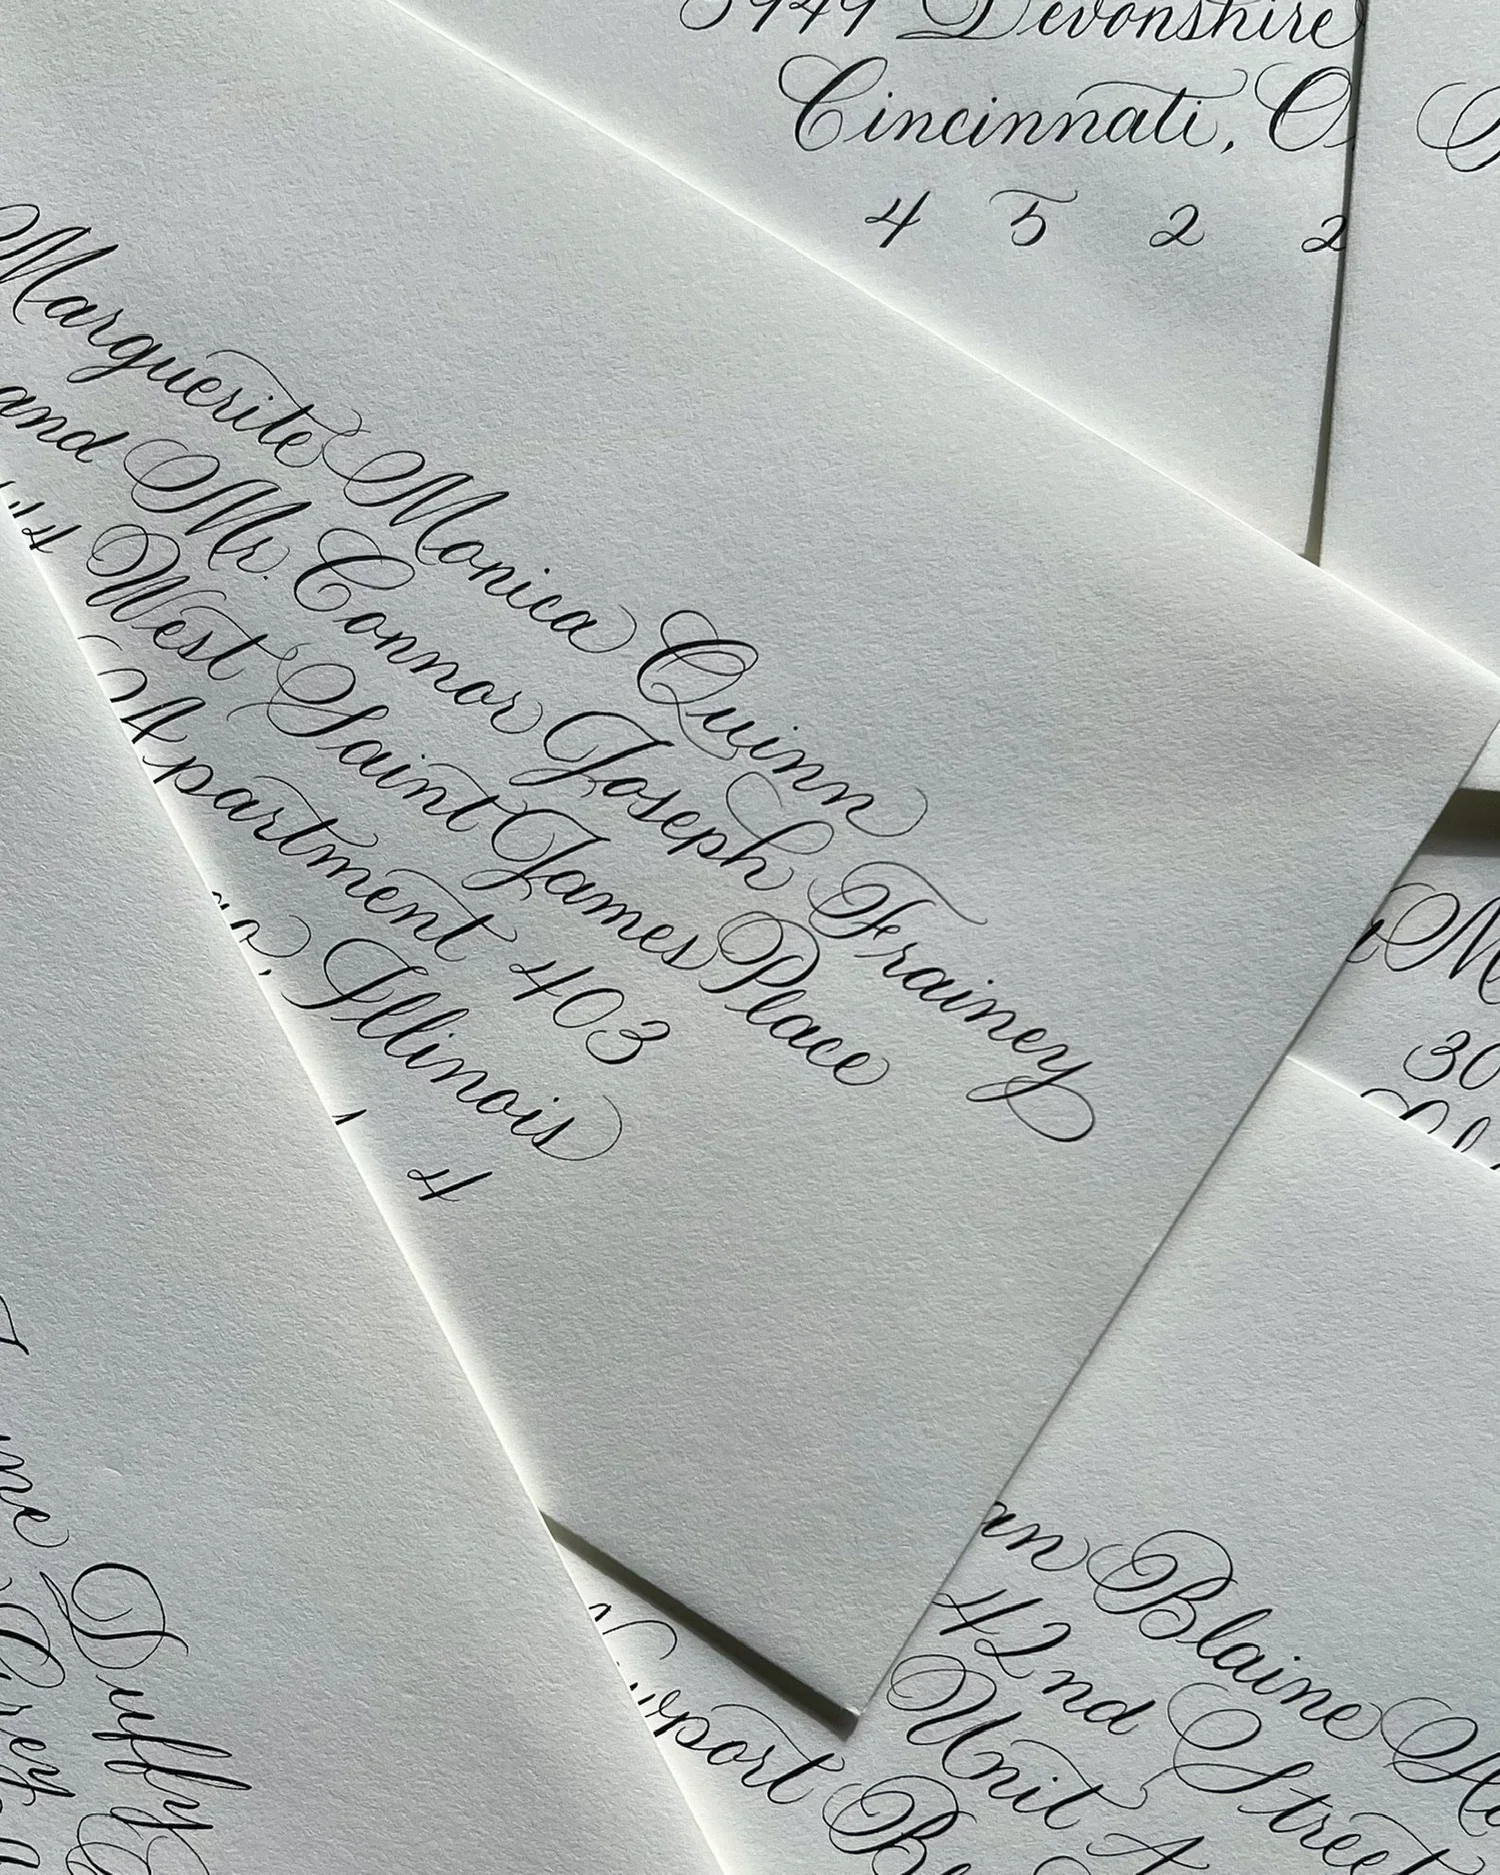 Devonshire
Cincinnati, O
4 5 2 2
Marguerite Monica Quinn
and Mr. Connor Joseph Frainey
West Saint James Place
Apartment 403
Illinois
4
30
Duffy
an Blaine
42nd Street
Unit A